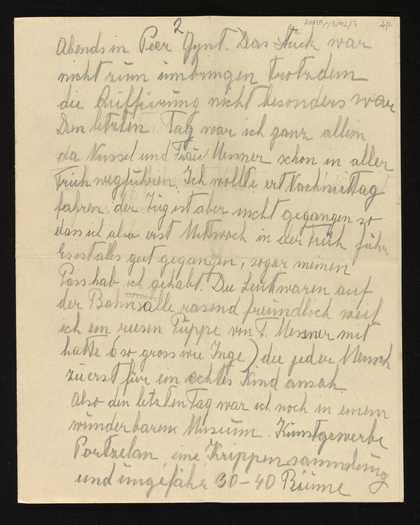 2
Abends in Peer Gynt. Das Stück war
nicht zum umbringen trotzdem
die Aufführung nicht besonders war
Den letzten Tag war ich ganz allein
da Nussel und Frau Messner schon in aller
Früh wegfuhren. Ich wollte erst Nachmittag
fahren der Zug ist aber nicht gegangen so
dass ich aber erst Mittwoch in der früh fuhr
Es ist alles gut gegangen, sogar meinen
Pass hab ich gehabt. Die Leute waren auf
der Bahn alle rasend freundlich weil
ich ein riesen Puppe von F. Messner mit
hatte (so gross wie Inge) die jeder Mensch
zuerst für ein echtes Kind ansah
Also den letzten Tag war ich noch in einem
wunderbaren Museum. Kunstgewerbe
Portzelan eine Krippensammlung
und ungefähr 30-40 Räume